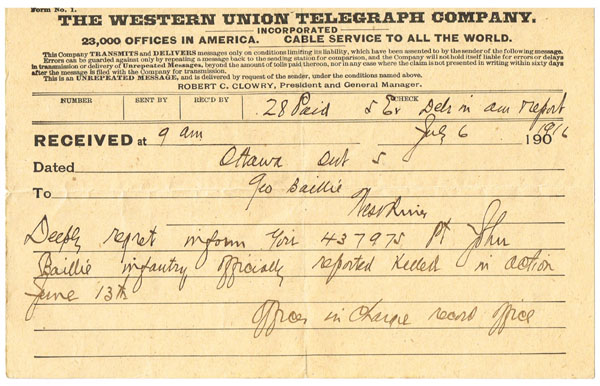 Form No. 1.
THE WESTERN UNION TELEGRAPH COMPANY.
INCORPORATED
23,000 OFFICES IN AMERICA. CABLE SERVICE TO ALL THE WORLD.
This Company TRANSMITS and DELIVERS messages only on conditions limiting its liability, which have been assented to by the sender of the following message.
Errors can be guarded against only by repeating a message back to the sending station for comparison, and the Company will not hold itself liable for errors or delays
in transmission or delivery of Unrepeated Messages, beyond the amount of tolls paid thereon, nor in any case where the claim is not presented in writing within sixty days
after the message is filed with the Company for transmission.
This is an UNREPEATED MESSAGE, and is delivered by request of the sender, under the conditions named above.
ROBERT C. CLOWRY, President and General Manager.
NUMBER SENT BY REC'D BY CHECK
28 Paid 5 Ex Delr in am report
RECEIVED at 9 am July 6 190 1916
Dated Ottawa Ont 5
To Geo Baillie
West River
Deeply regret inform you 437975 Pt John
Baillie infantry officially reported killed in action
June 13th
Officer in Charge record office